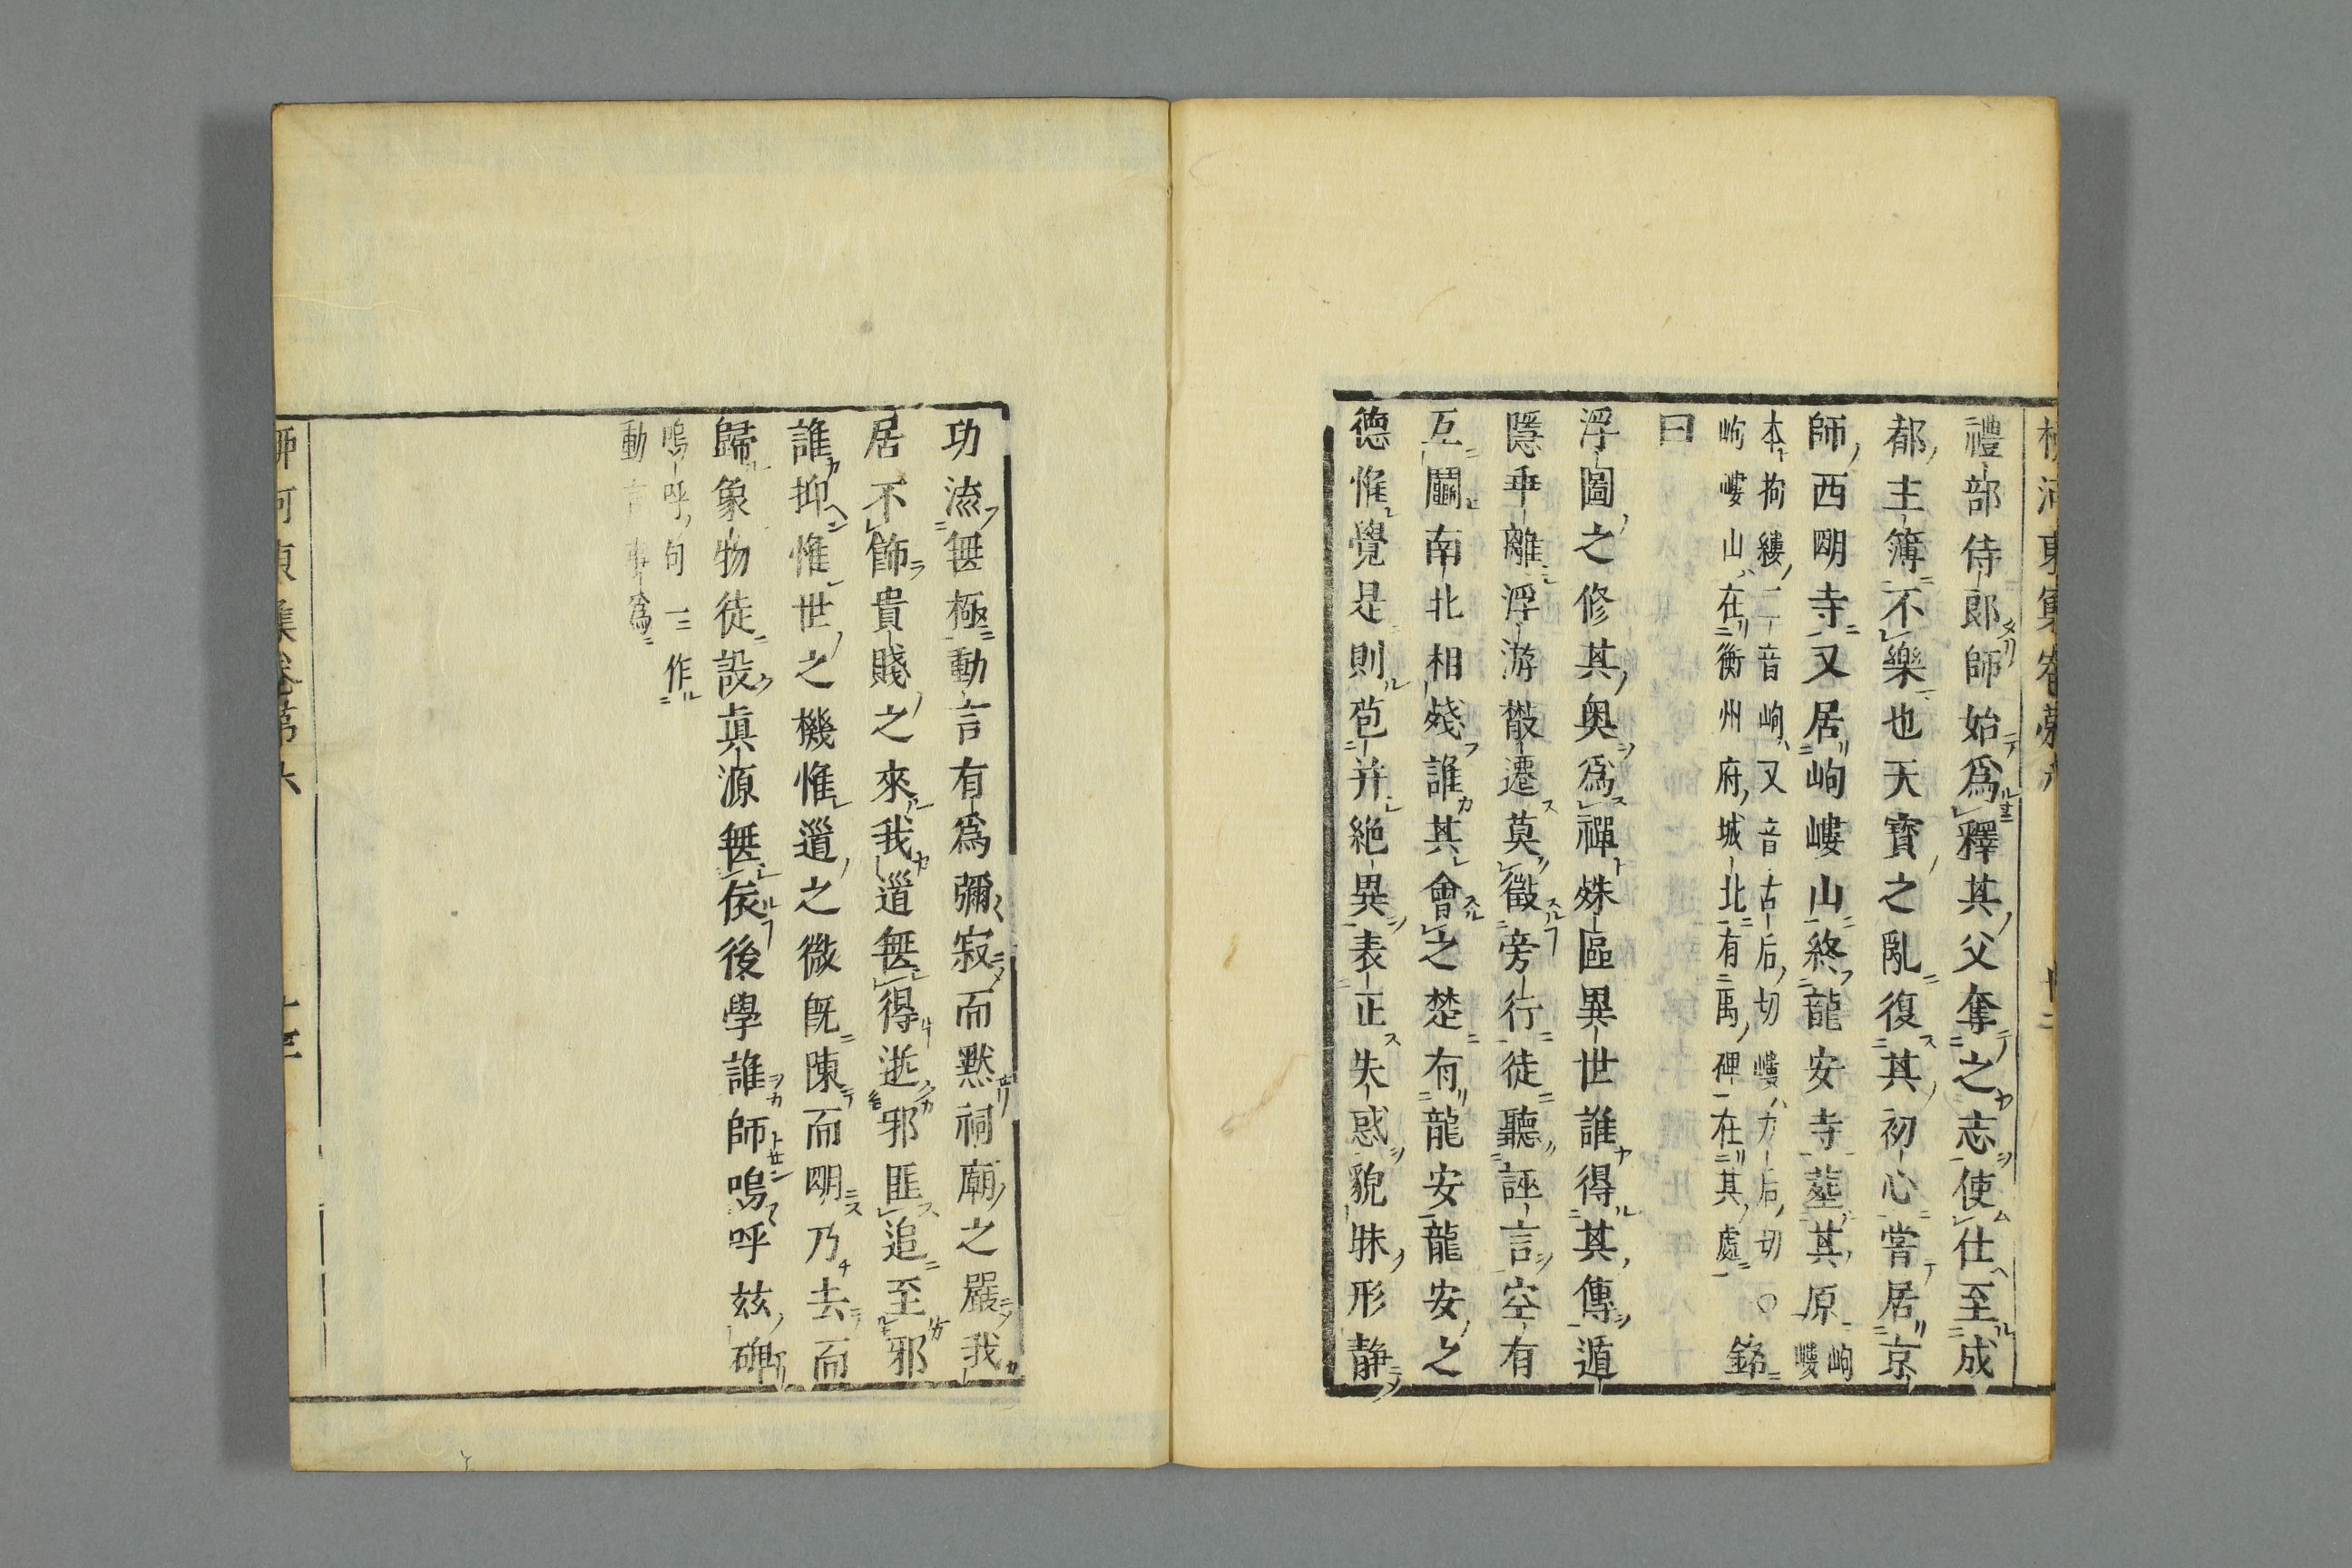 禮部侍郎師始爲釋其父奪之志使仕至成
都主簿不樂也天寶之亂復其初心嘗居京
師西明寺又居岣嶁山終龍安寺葬其原岣嶁
本拘縷二音岣又音古后切嶁力后切○
岣嶁山在衡州府城北有禹碑在其處銘
曰
浮圖之修其奥爲禪殊區異世誰得其傳遁
隱乖離浮游散遷莫徵旁行徒聽誣言空有
互鬭南北相殘誰其會之楚有龍安龍安之
德惟覺是則苞并絶異表正失惑貌昧形静
功流無極動言有爲彌寂而黙祠廟之嚴我
居不飾貴賤之來我道無得逝邪匪追至邪
誰抑惟世之機惟道之微旣陳而明乃去而
歸象物徒設眞源無依後學誰師嗚呼玆碑
嗚呼句一作
動言事爲
柳河東集卷第六